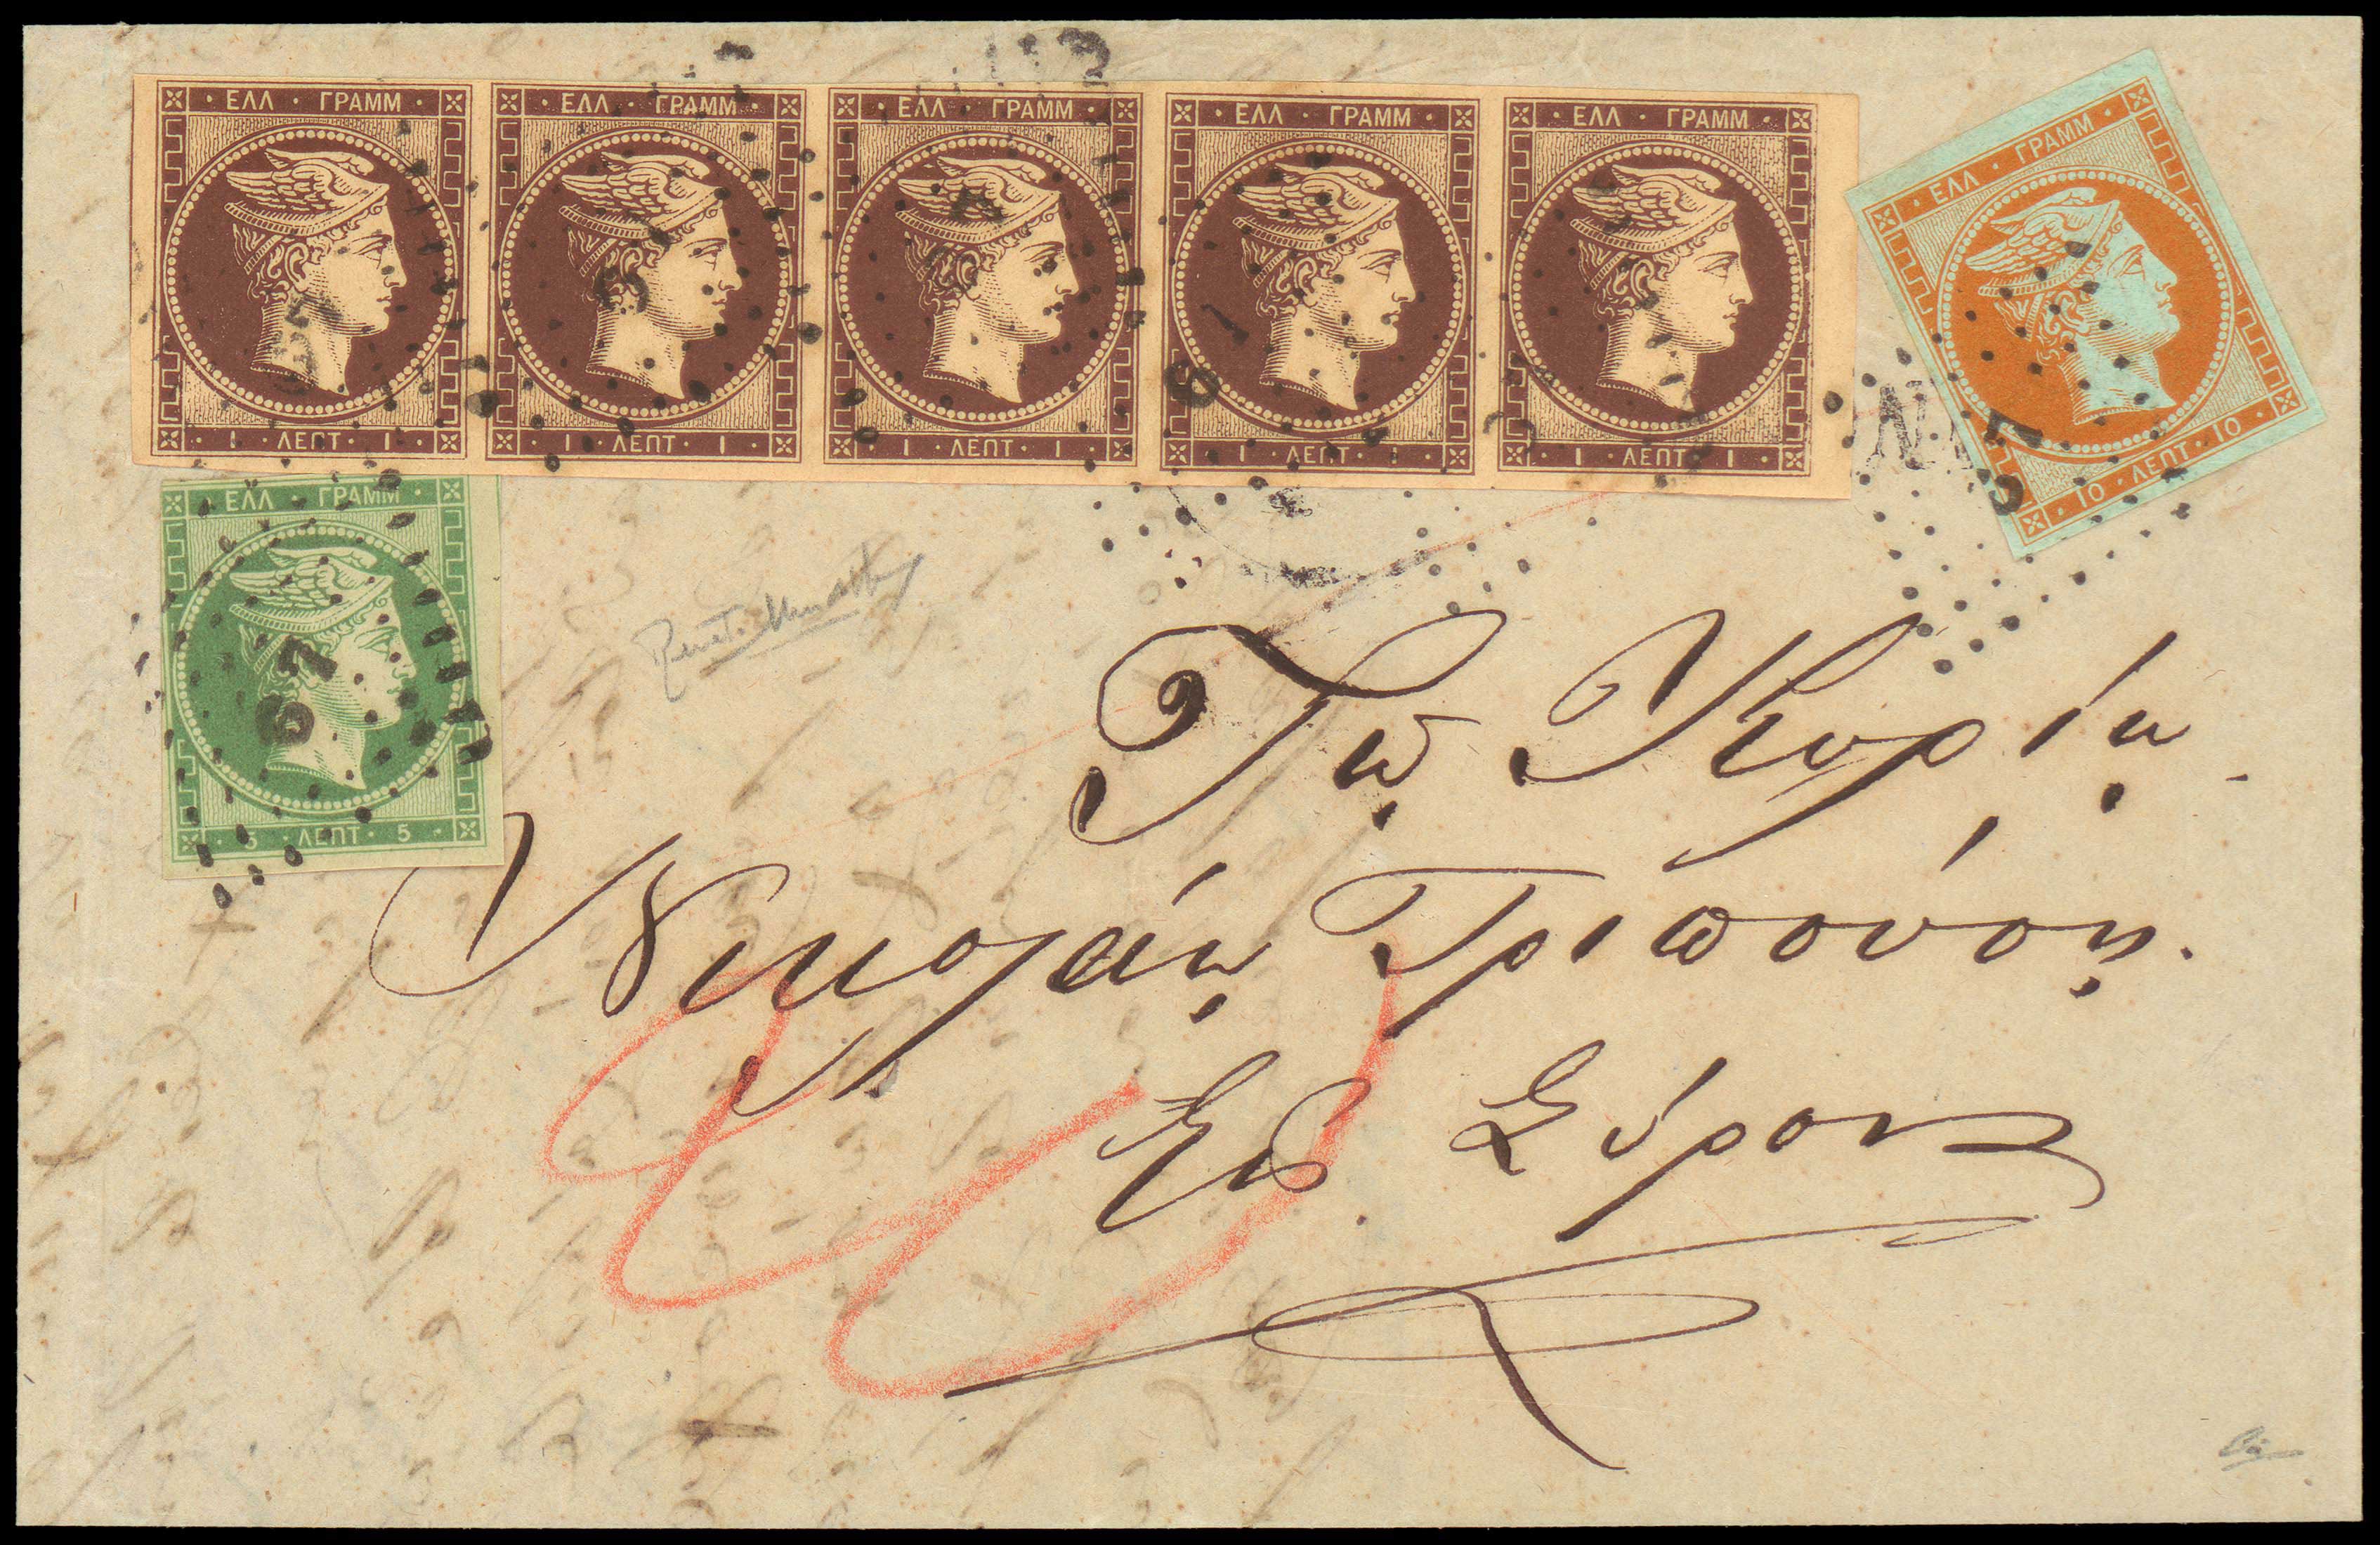 ΕΛΛ · ΓΡΑΜΜ · ΕΛΛ · ΓΡΑΜΜ · ΕΛΛ · ΓΡΑΜΜ · ΕΛΛ · ΓΡΑΜΜ · ΕΛΛ · ΓΡΑΜΜ
1 · ΛΕΠΤ · 1 1 · ΛΕΠΤ · 1 1 · ΛΕΠΤ · 1 1 · ΛΕΠΤ · 1 1 · ΛΕΠΤ · 1
ΕΛΛ · ΓΡΑΜΜ
10 · ΛΕΠΤ · 10
ΕΛΛ · ΓΡΑΜΜ
67
5 · ΛΕΠΤ · 5
Τῷ Κυρίῳ
Νικολάῳ Τριπούδῃ.
Εἰς Σύρον